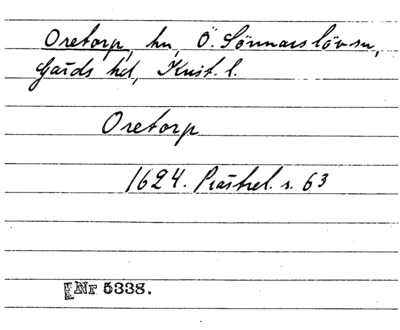 Oretorp, hn, Ö. Sönnarslövs sn,
Gärds hd, Krist. l.
Oretorp
1624. Prästrel. s. 63
Nr 5338.